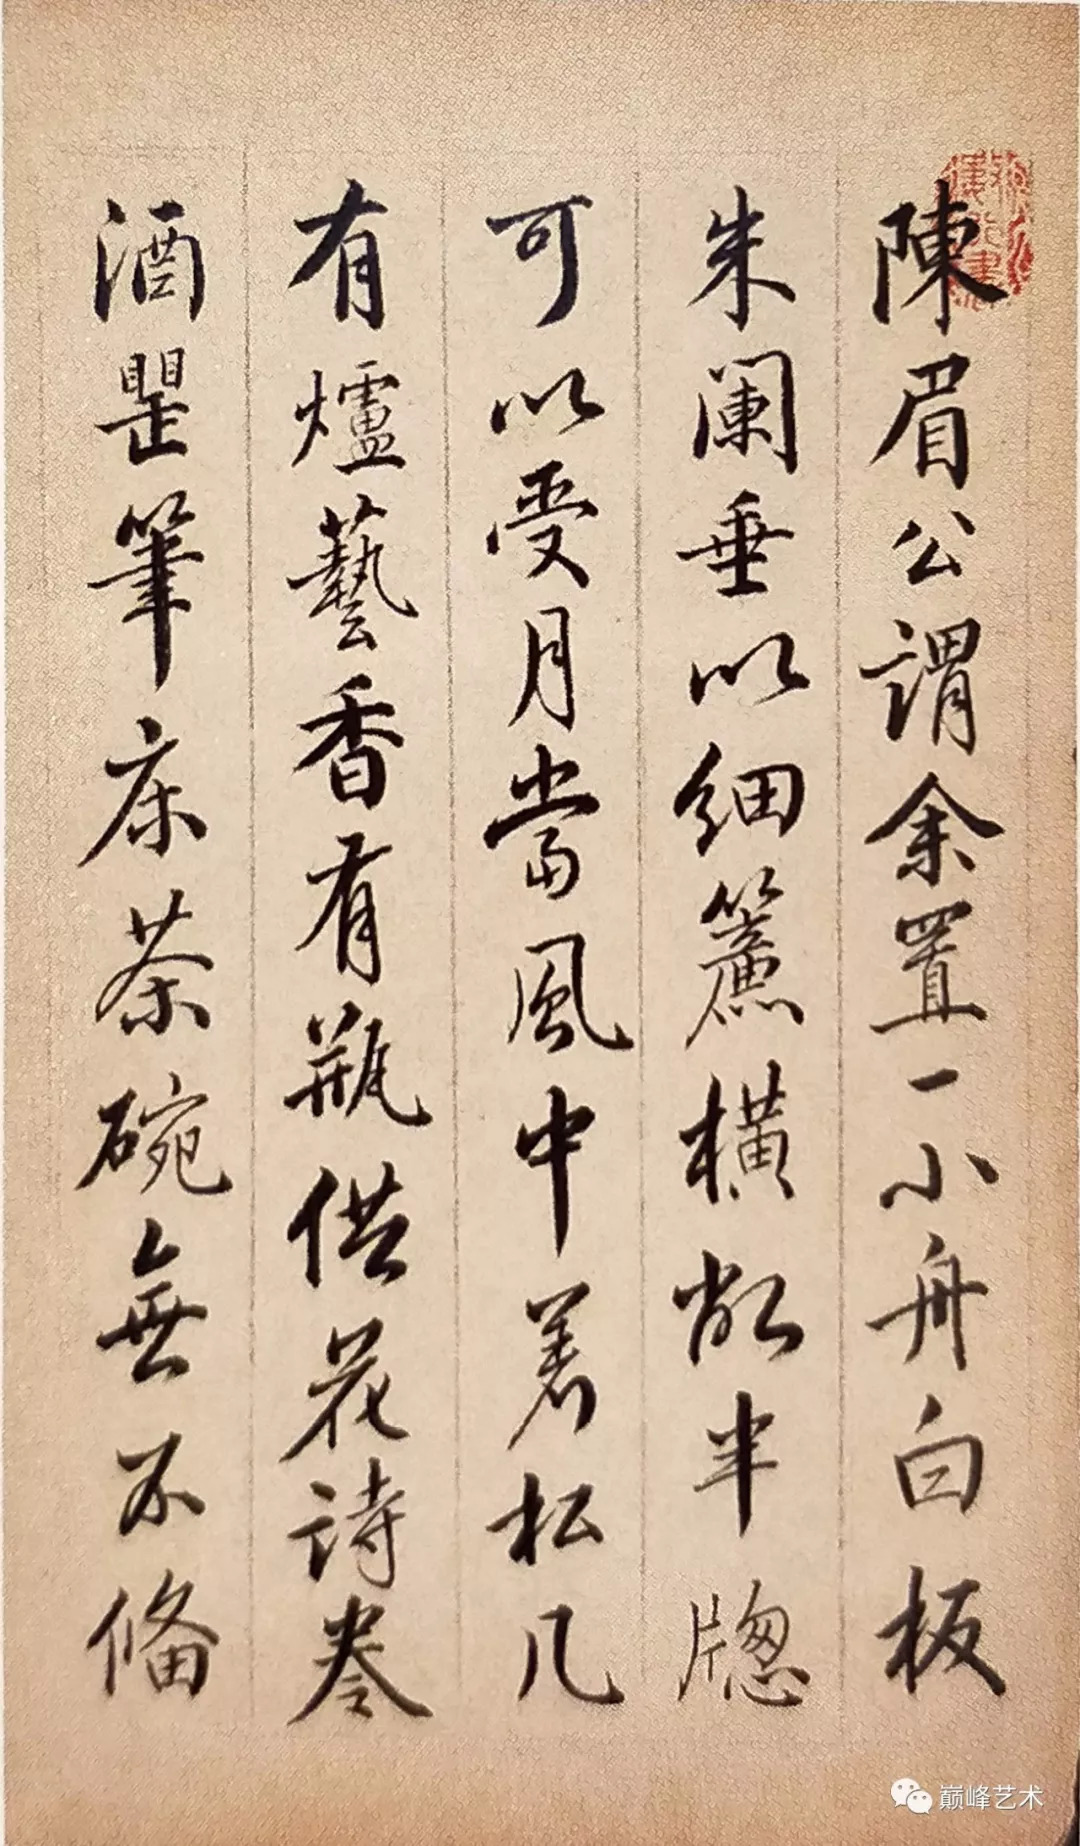 陳眉公謂余置一小舟白板
朱闌垂以細簾橫敞半牕
可以受月當風中著松几
有爐藝香有瓶供花詩卷
酒瞿筆床茶碗無不俻
巅峰艺术